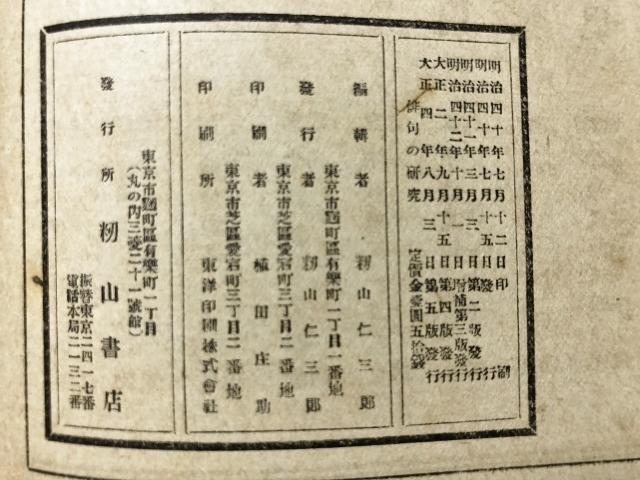 明治四十年七月十二日印刷
明治四十年七月十五日發行
明治四十一年三月三日第二版發行
明治四十二年十月一日增補第三版發行
大正二年九月十五日第四版發行
大正四年八月三日第五版發行
俳句の研究 定價金壹圓五拾錢
編輯者 籾山仁三郎
東京市麹町區有樂町一丁目一番地
發行者 籾山仁三郎
東京市芝區愛宕町三丁目二番地
印刷者 植田庄助
東京市芝區愛宕町三丁目二番地
印刷所 東洋印刷株式會社
東京市麹町區有樂町一丁目
(丸の内三菱二十一號館)
發行所 籾山書店
振替東京二四一七番
電話本局二一三二番